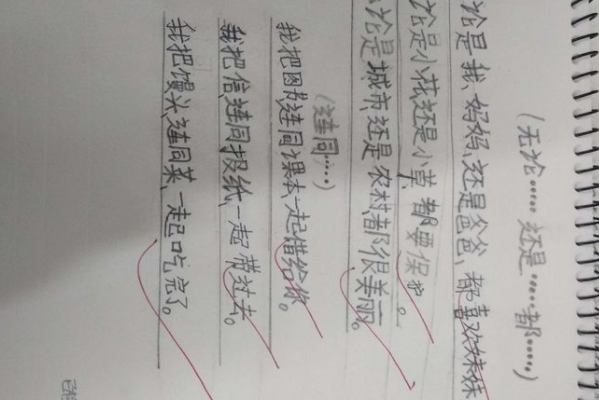 (无论……还是……都……)
论是我、妈妈、还是爸爸、都喜欢妹妹
论是小花还是小草、都要保护。
论是城市、还是农村都很美丽。
(连同……)
我把图书连同课本、一起借给你。
我把信、连同报纸、一起带过去。
我把馒头、连同菜、一起吃完了。